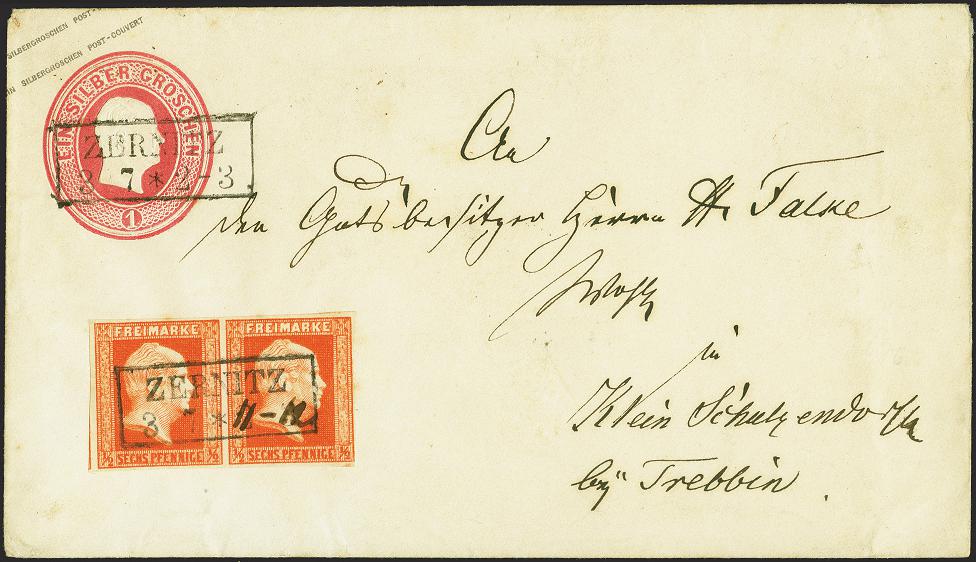 SILBERGROSCHEN POST-COUVERT
EIN SILBERGROSCHEN POST-COUVERT
EIN SILBER GROSCHEN
1
ZERNITZ
3 7 * 2-3
An
den Gutsbesitzer Herrn Falke
Wohlg
in
Klein Schulzendorf
bey Trebbin.
FREIMARKE FREIMARKE
ZERNITZ
3 7 * 11-12
½ SECHS PFENNIGE ½ ½ SECHS PFENNIGE ½